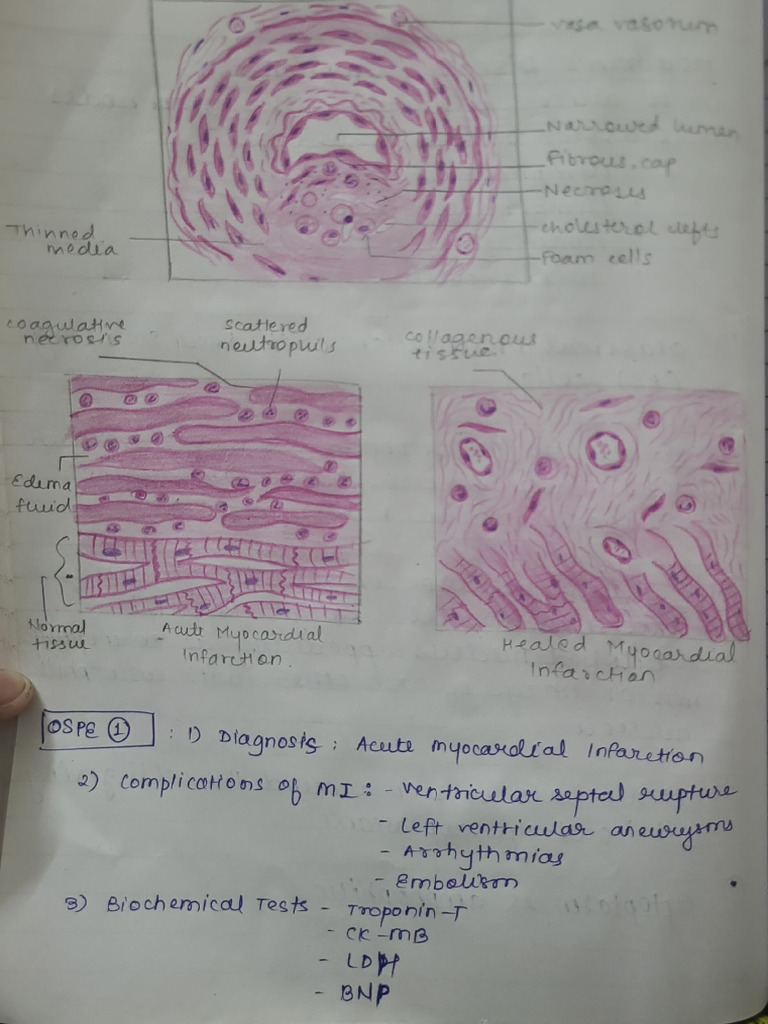 vasa vasorum
Narrowed lumen
Fibrous cap
Necrosis
cholesterol clefts
Foam cells
Thinned
media
coagulative
necrosis
scattered
neutrophils
collagenous
tissue
Edema
fluid
Normal
tissue
Acute Myocardial
Infarction.
Healed Myocardial
Infarction
OSPE ① : 1) Diagnosis : Acute myocardial Infarction
2) Complications of MI : - ventricular septal rupture
- Left ventricular aneurysms
- Arrhythmias
- Embolism
3) Biochemical Tests - Troponin-T
- CK-MB
- LDH
- BNP